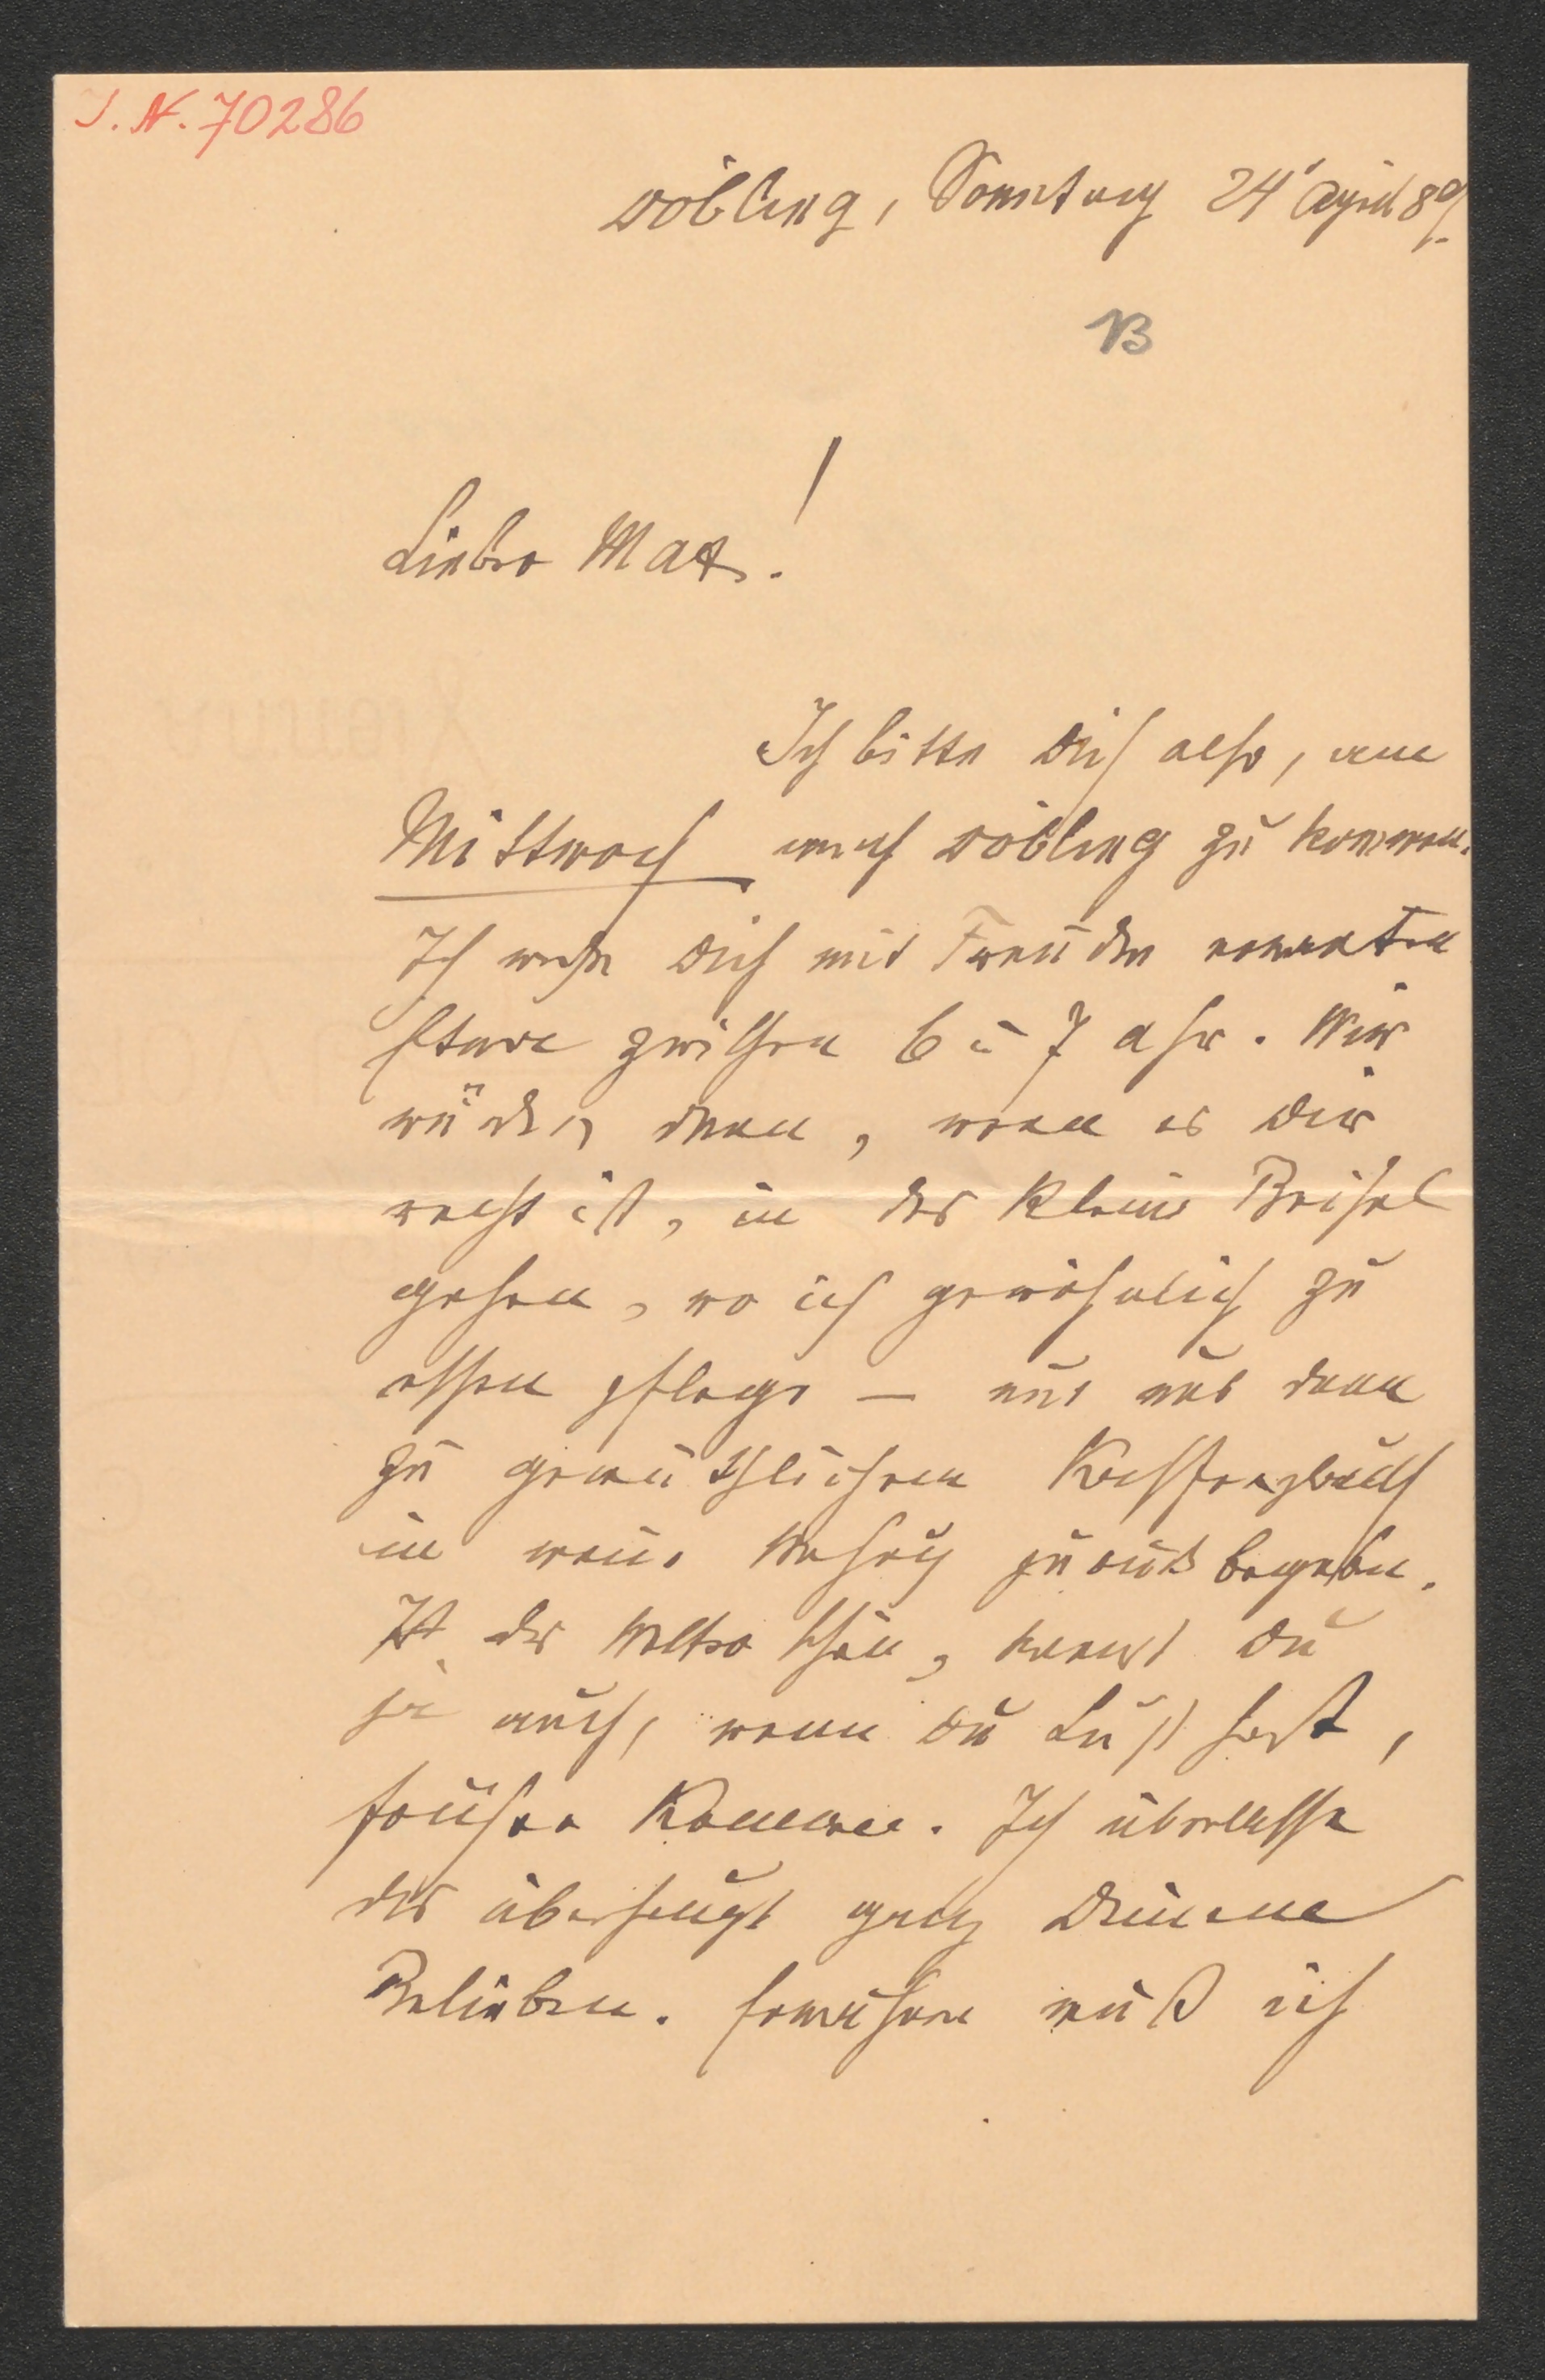 J. N. 70286
Döbling, Sonntag 24' April 89.
B
Lieber Max!
Ich bitte Dich also, am
Mittwoch nach Döbling zu kommen.
Ich werde Dich mit Freuden erwarten
etwa zwischen 6 u 7 Uhr. Wir
würden dann, wenn es Dir
recht ist, in das kleine Beisel
gehen, wo ich gewöhnlich zu
essen pflege – und uns dann
zu gemüthlichem
in meine zurück begeben.
Ist das Wetter schön, kannst Du
ja auch, wenn Du Lust hast,
früher kommen. Ich überlasse
das überhaupt ganz Deinem
Belieben. muß ich